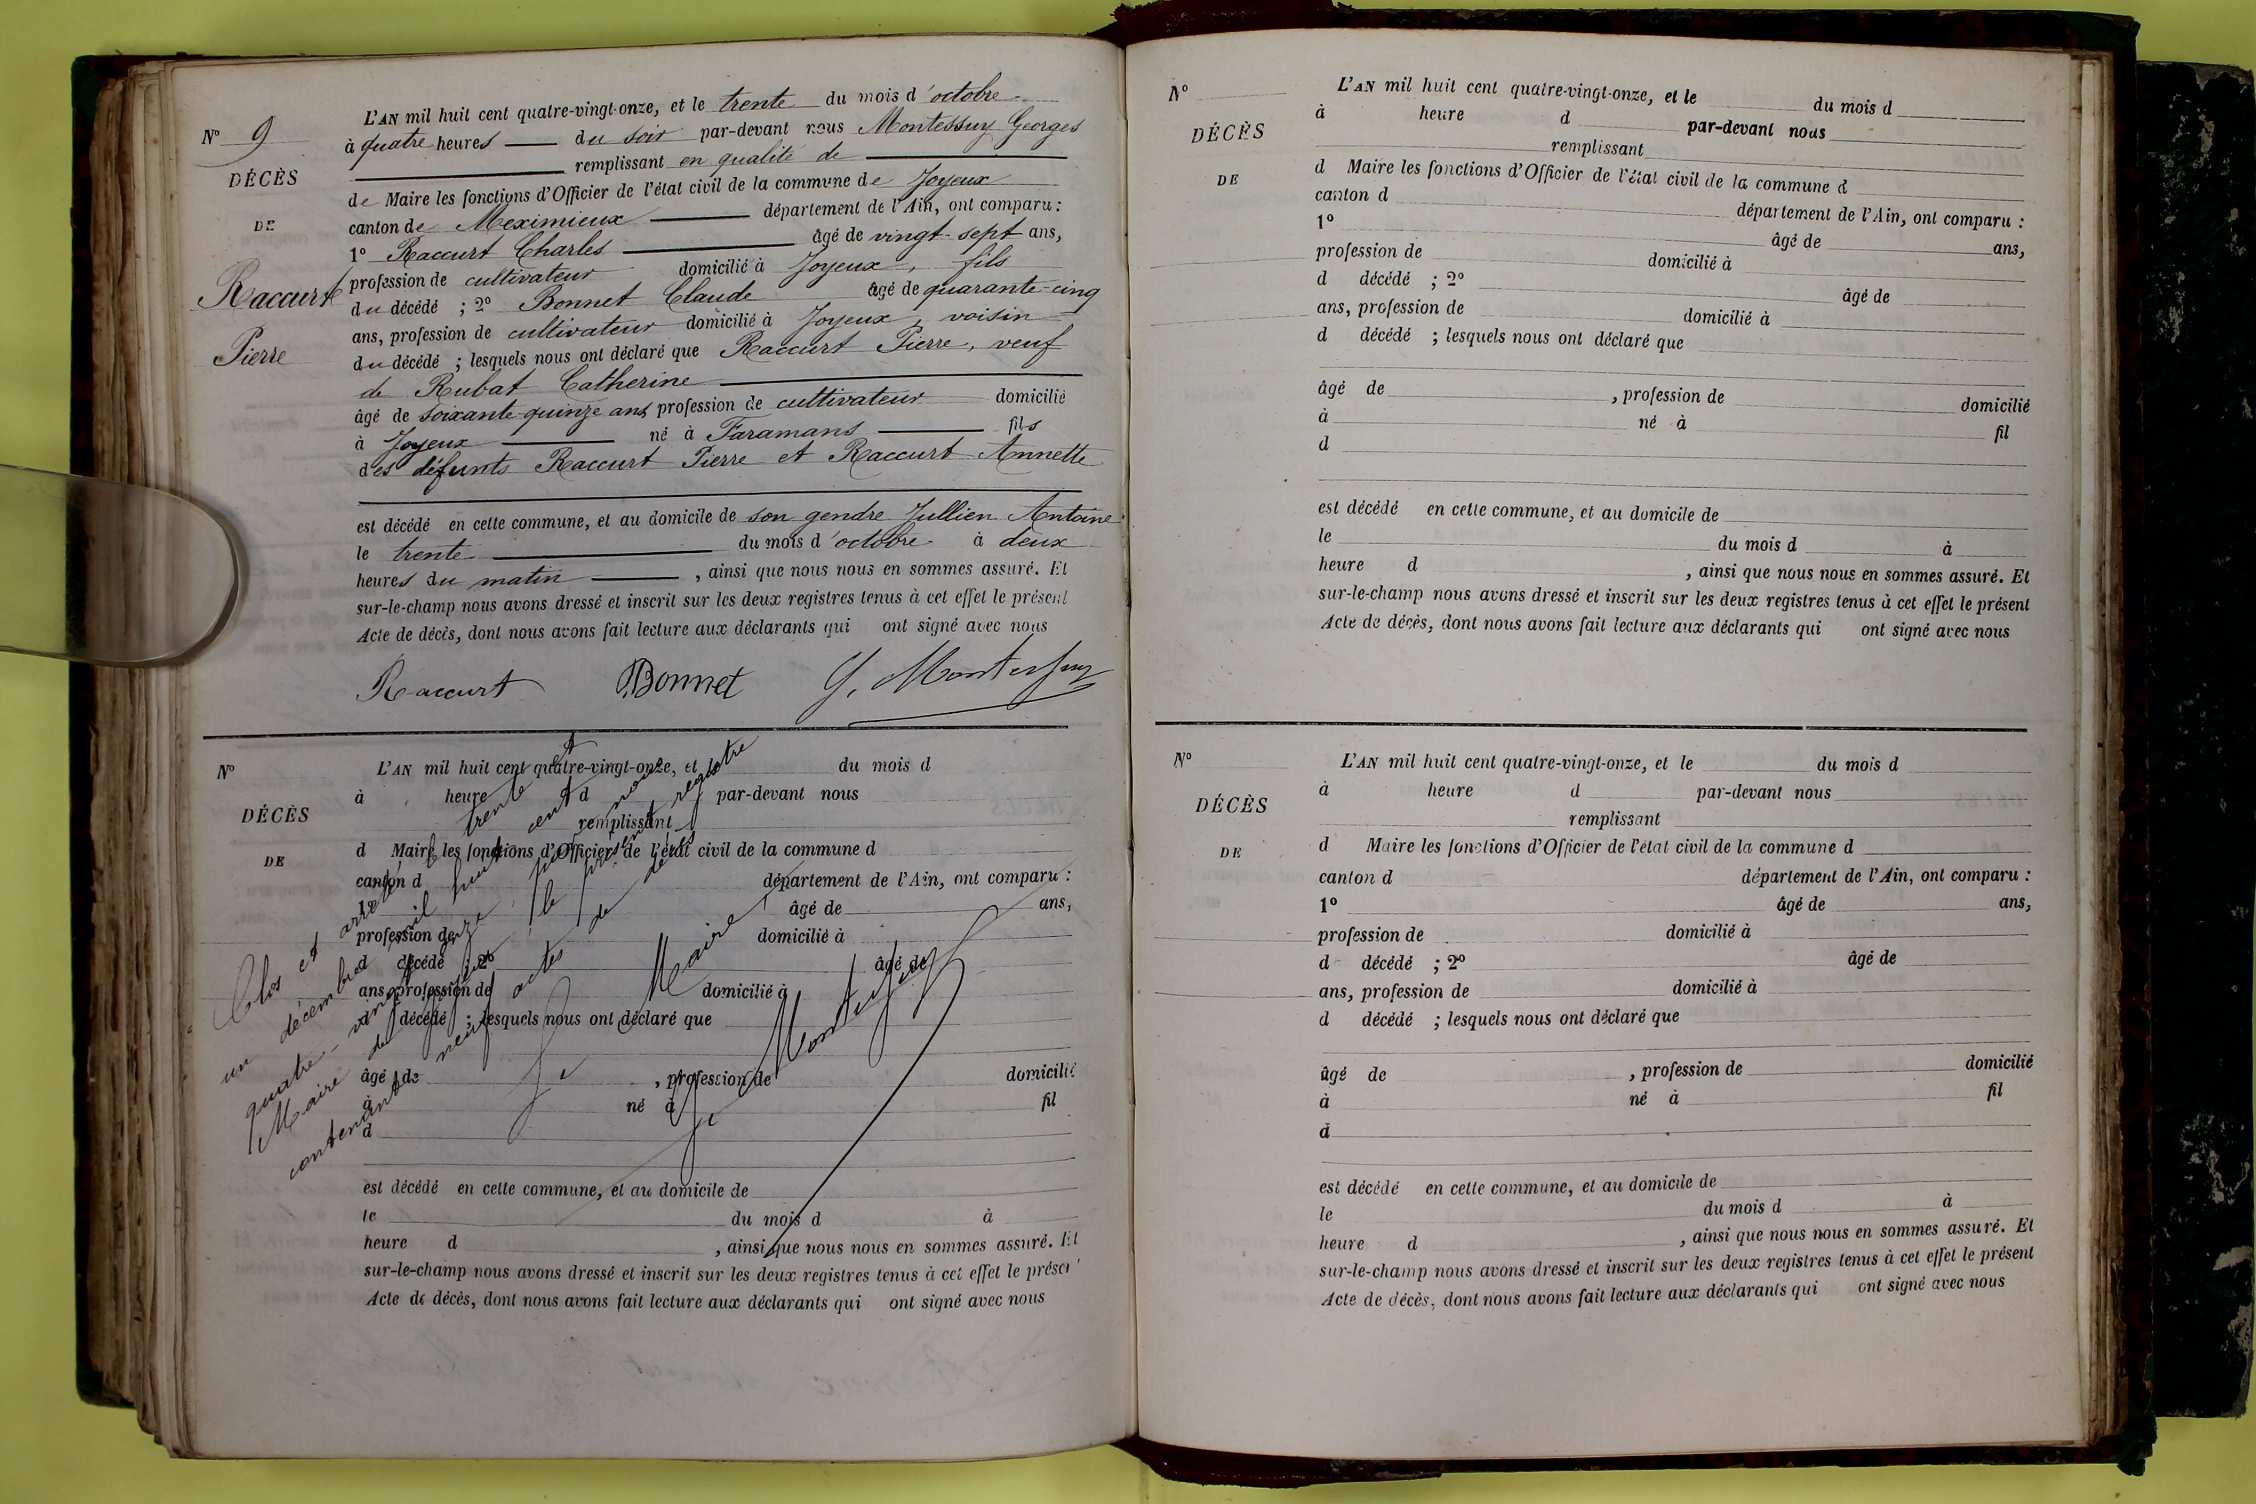 N° 9
DÉCÈS
DE
Raccurt
Pierre
L'AN mil huit cent quatre-vingt-onze, et le trente du mois d'octobre
à quatre heures du soir par-devant nous Montessuy Georges
remplissant en qualité de
de Maire les fonctions d'Officier de l'état civil de la commune de Joyeux
canton de Meximieux département de l'Ain, ont comparu :
1° Raccurt Charles âgé de vingt-sept ans,
profession de cultivateur domicilié à Joyeux, fils
du décédé ; 2° Bonnet Claude âgé de quarante-cinq
ans, profession de cultivateur domicilié à Joyeux, voisin
du décédé ; lesquels nous ont déclaré que Raccurt Pierre, veuf
de Rubat Catherine
âgé de soixante-quinze ans profession de cultivateur domicilié
à Joyeux né à Faramans fils
des défunts Raccurt Pierre et Raccurt Annette
est décédé en cette commune, et au domicile de son gendre Jullien Antoine
le trente du mois d'octobre à deux
heures du matin, ainsi que nous nous en sommes assuré. Et
sur-le-champ nous avons dressé et inscrit sur les deux registres tenus à cet effet le présent
Acte de décès, dont nous avons fait lecture aux déclarants qui ont signé avec nous
Raccurt Bonnet G. Montessuy
N°
DÉCÈS
DE
L'AN mil huit cent quatre-vingt-onze, et le du mois d
à heure d par-devant nous
remplissant
d Maire les fonctions d'Officier de l'état civil de la commune d
canton d département de l'Ain, ont comparu :
1° âgé de ans,
profession de domicilié à
d décédé ; 2° âgé de
ans, profession de domicilié à
d décédé ; lesquels nous ont déclaré que
âgé de , profession de domicilié
à né à fil
d
est décédé en cette commune, et au domicile de
le du mois d à
heure d , ainsi que nous nous en sommes assuré. Et
sur-le-champ nous avons dressé et inscrit sur les deux registres tenus à cet effet le présent
Acte de décès, dont nous avons fait lecture aux déclarants qui ont signé avec nous
Clos et arrêté le trente et
un décembre mil huit cent
quatre-vingt onze, par nous
Maire de Joyeux, le présent registre
contenant neuf actes de décès
Le Maire
G. Montessuy
N°
DÉCÈS
DE
L'AN mil huit cent quatre-vingt-onze, et le du mois d
à heure d par-devant nous
remplissant
d Maire les fonctions d'Officier de l'état civil de la commune d
canton d département de l'Ain, ont comparu :
1° âgé de ans,
profession de domicilié à
d décédé ; 2° âgé de
ans, profession de domicilié à
d décédé ; lesquels nous ont déclaré que
âgé de , profession de domicilié
à né à fil
d
est décédé en cette commune, et au domicile de
le du mois d à
heure d , ainsi que nous nous en sommes assuré. Et
sur-le-champ nous avons dressé et inscrit sur les deux registres tenus à cet effet le présent
Acte de décès, dont nous avons fait lecture aux déclarants qui ont signé avec nous
N°
DÉCÈS
DE
L'AN mil huit cent quatre-vingt-onze, et le du mois d
à heure d par-devant nous
remplissant
d Maire les fonctions d'Officier de l'état civil de la commune d
canton d département de l'Ain, ont comparu :
1° âgé de ans,
profession de domicilié à
d décédé ; 2° âgé de
ans, profession de domicilié à
d décédé ; lesquels nous ont déclaré que
âgé de , profession de domicilié
à né à fil
d
est décédé en cette commune, et au domicile de
le du mois d à
heure d , ainsi que nous nous en sommes assuré. Et
sur-le-champ nous avons dressé et inscrit sur les deux registres tenus à cet effet le présent
Acte de décès, dont nous avons fait lecture aux déclarants qui ont signé avec nous